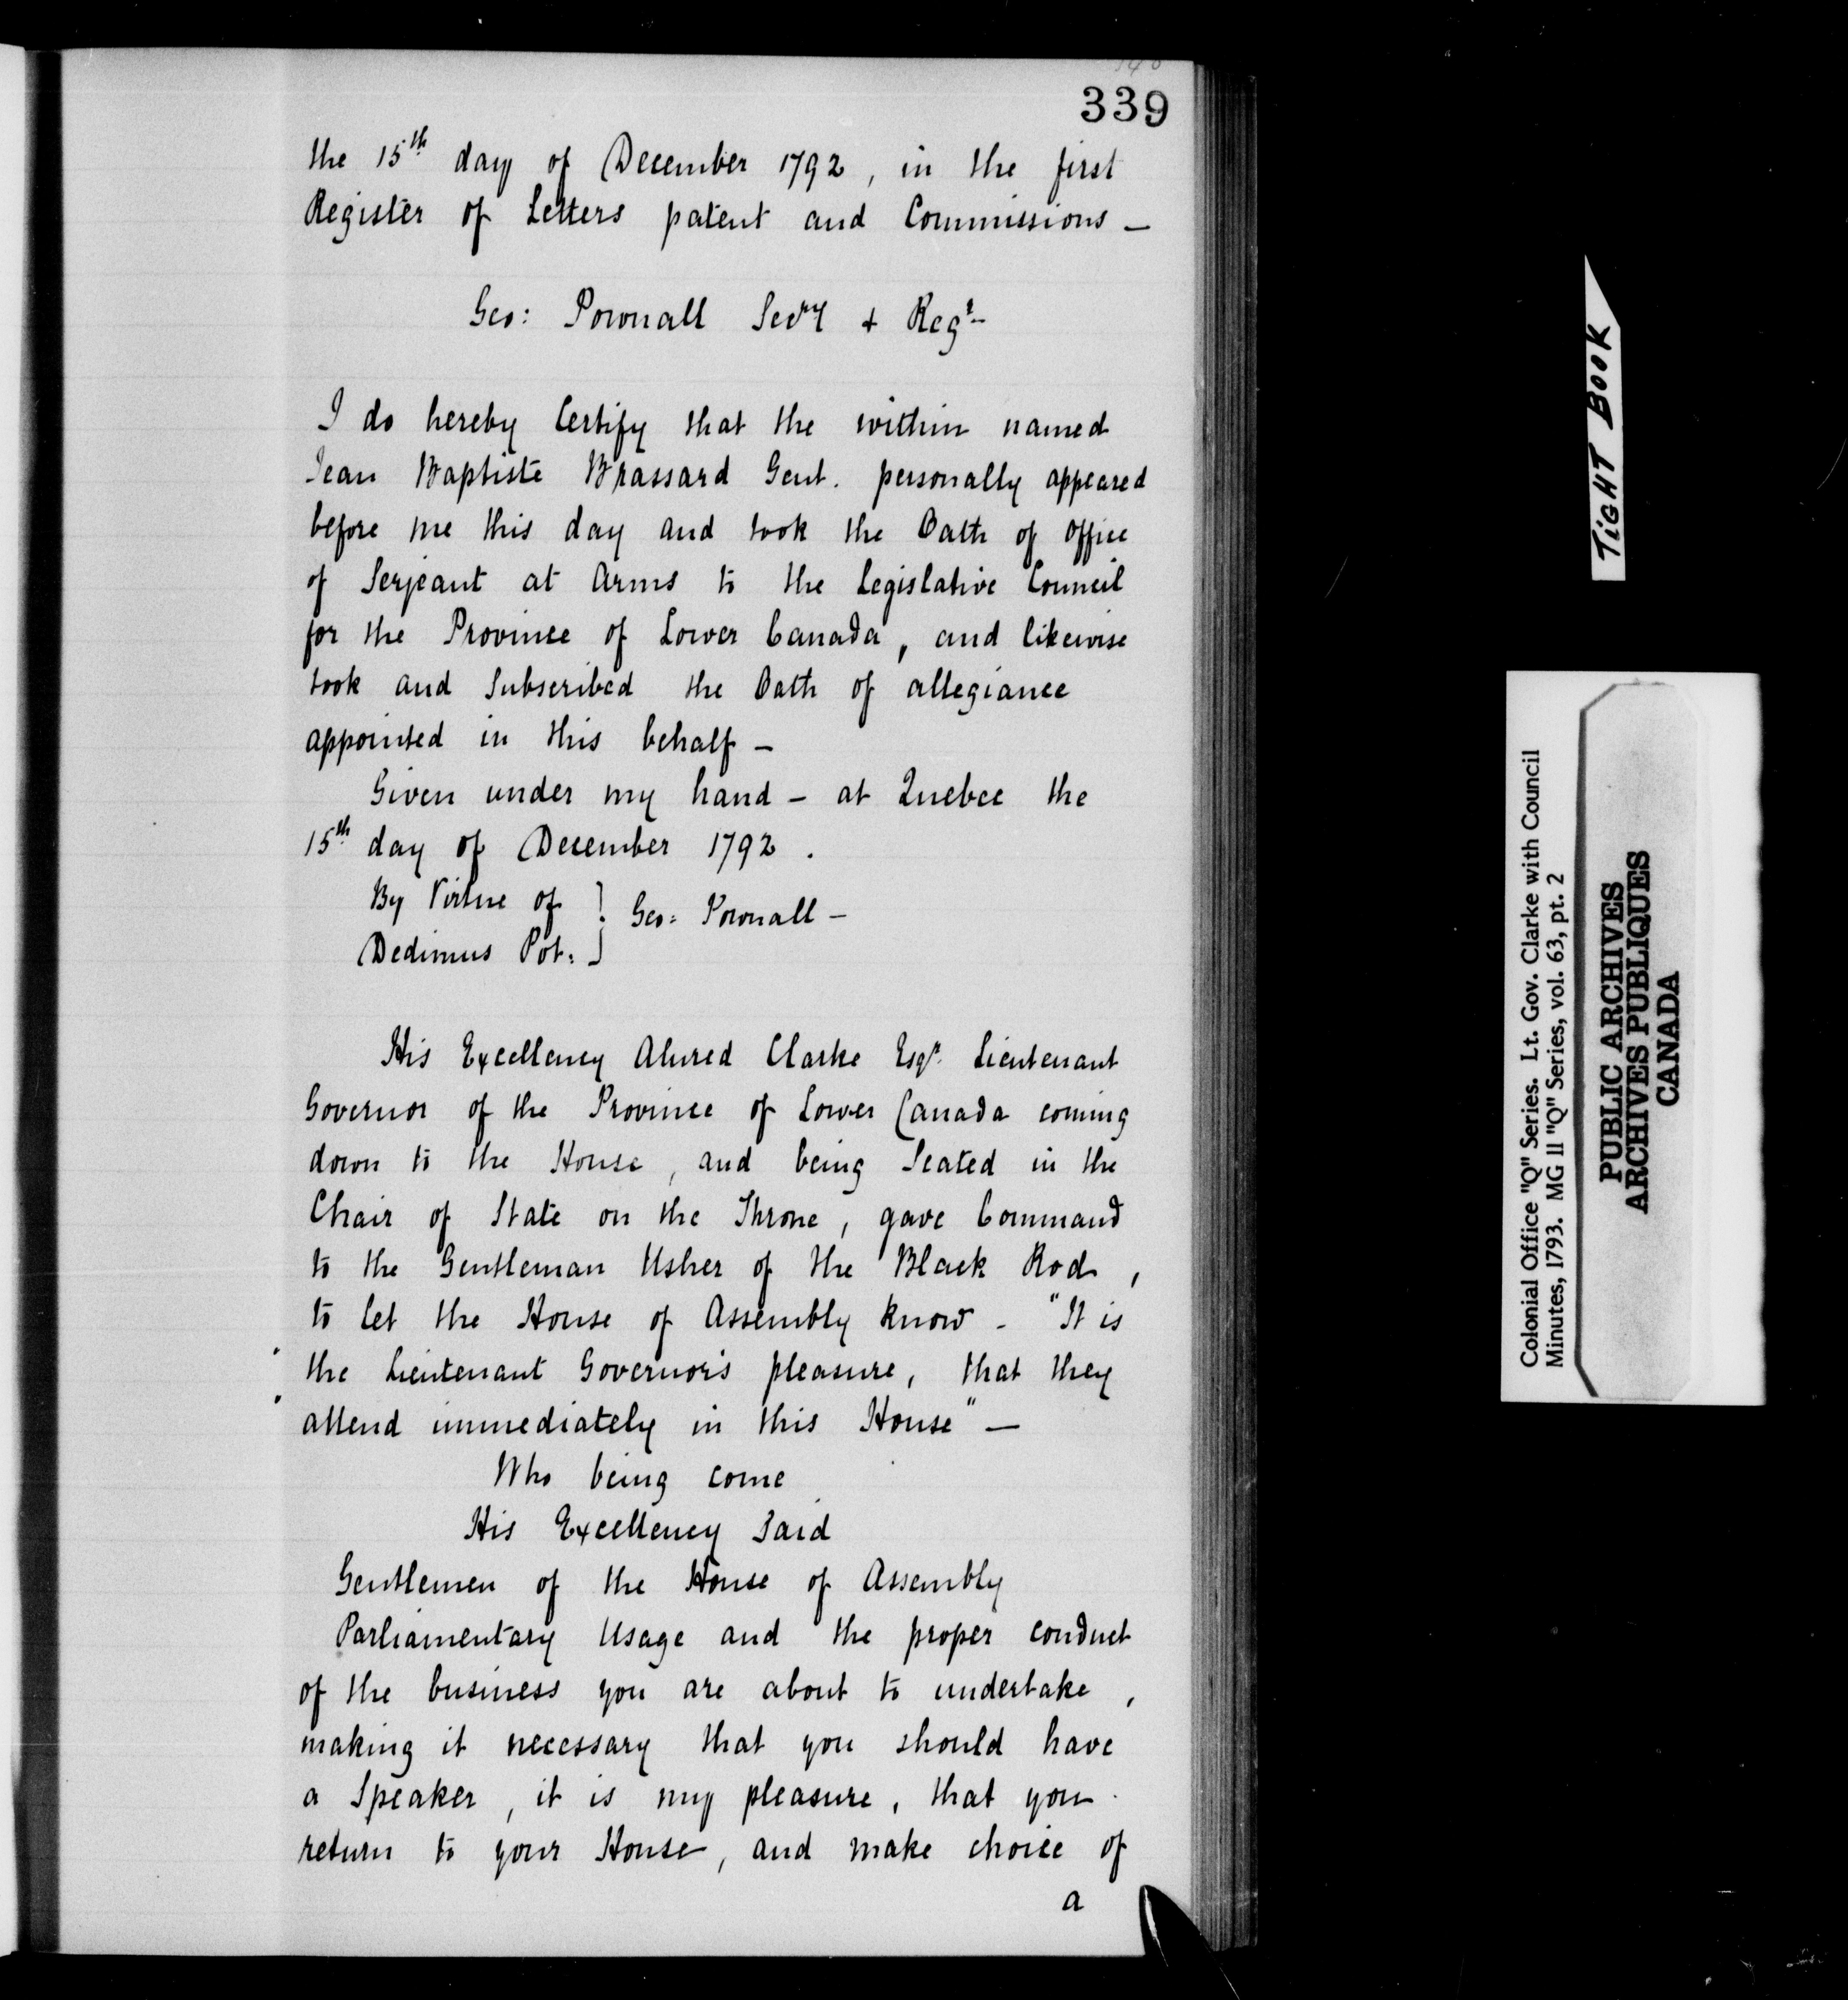 339
the 15th day of December 1792, in the first
Register of Letters patent and Commissions —
Geo: Pownall Secry + Regr
I do hereby Certify that the within named
Jean Baptiste Brassard Gent. personally appeared
before me this day and took the Oath of Office
of Serjeant at Arms to the Legislative Council
for the Province of Lower Canada, and likewise
took and Subscribed the Oath of allegiance
appointed in this behalf —
Given under my hand — at Quebec the
15th day of December 1792.
By Virtue of } Geo: Pownall —
Dedimus Pot: }
His Excellency Alured Clarke Esqr. Lieutenant
Governor of the Province of Lower Canada coming
down to the House, and being Seated in the
Chair of State on the Throne, gave Command
to the Gentleman Usher of the Black Rod,
to let the House of Assembly know - "It is
' the Lieutenant Governor's pleasure, that they
' attend immediately in this House" —
Who being come
His Excellency Said
Gentlemen of the House of Assembly
Parliamentary Usage and the proper conduct
of the business you are about to undertake,
making it necessary that you should have
a Speaker, it is my pleasure, that you
return to your House, and make choice of
a
TiGHT BOOK
Colonial Office "Q" Series. Lt. Gov. Clarke with Council
Minutes, 1793. MG 11 "Q" Series, vol. 63, pt. 2
PUBLIC ARCHIVES
ARCHIVES PUBLIQUES
CANADA